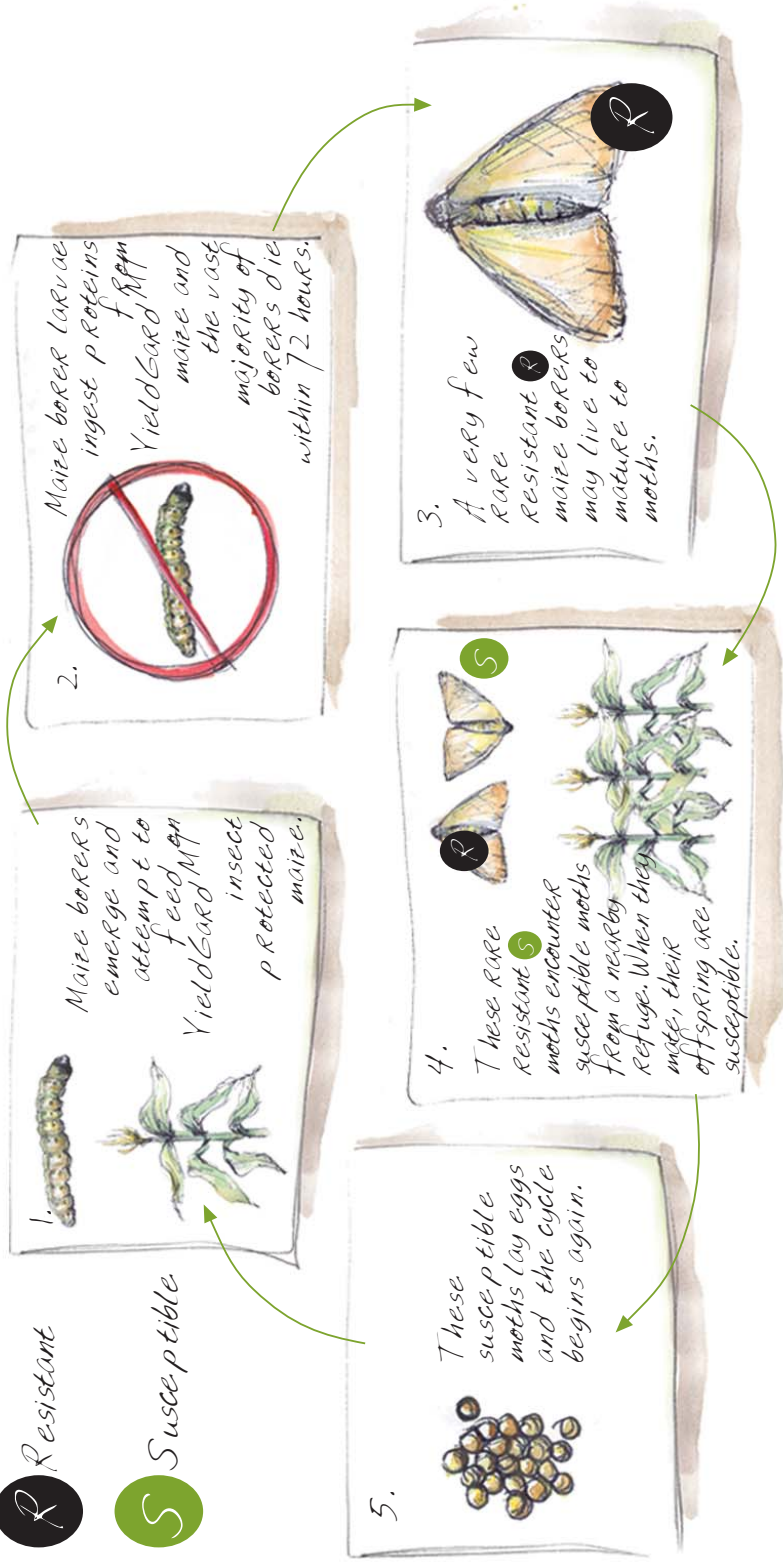 R Resistant
S Susceptible
1.
Maize borers
emerge and
attempt to
feed on
YieldGard M
insect
protected
maize.
2.
Maize borer larvae
ingest proteins
from
YieldGard M
maize and
the vast
majority of
borers die
within 72 hours.
3.
A very few
rare
resistant R
maize borers
may live to
mature to
moths.
R
4.
These rare
resistant S
moths encounter
susceptible moths
from a nearby
refuge. When they
mate, their
offspring are
susceptible.
R
S
5.
These
susceptible
moths lay eggs
and the cycle
begins again.